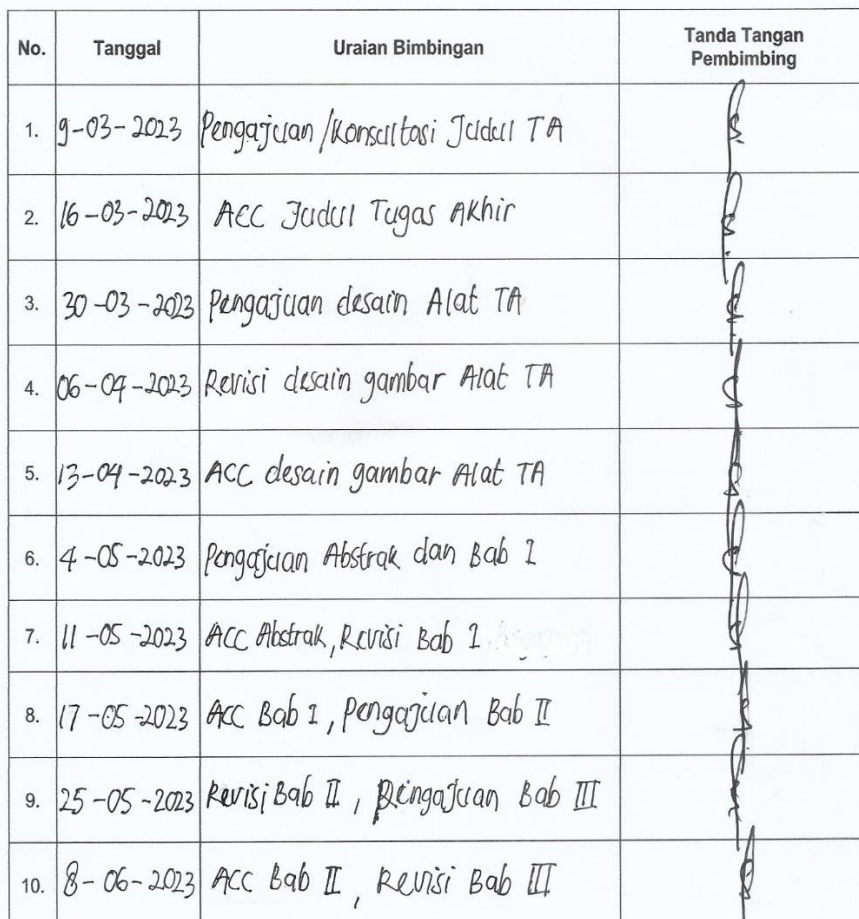 No. Tanggal Uraian Bimbingan Tanda Tangan
Pembimbing
1. 9-03-2023 Pengajuan/Konsultasi Judul TA
2. 16-03-2023 ACC Judul Tugas Akhir
3. 30-03-2023 Pengajuan desain Alat TA
4. 06-04-2023 Revisi desain gambar Alat TA
5. 13-04-2023 ACC desain gambar Alat TA
6. 4-05-2023 Pengajuan Abstrak dan Bab I
7. 11-05-2023 ACC Abstrak, Revisi Bab I
8. 17-05-2023 ACC Bab I, Pengajuan Bab II
9. 25-05-2023 Revisi Bab II, Pengajuan Bab III
10. 8-06-2023 ACC Bab II, Revisi Bab III